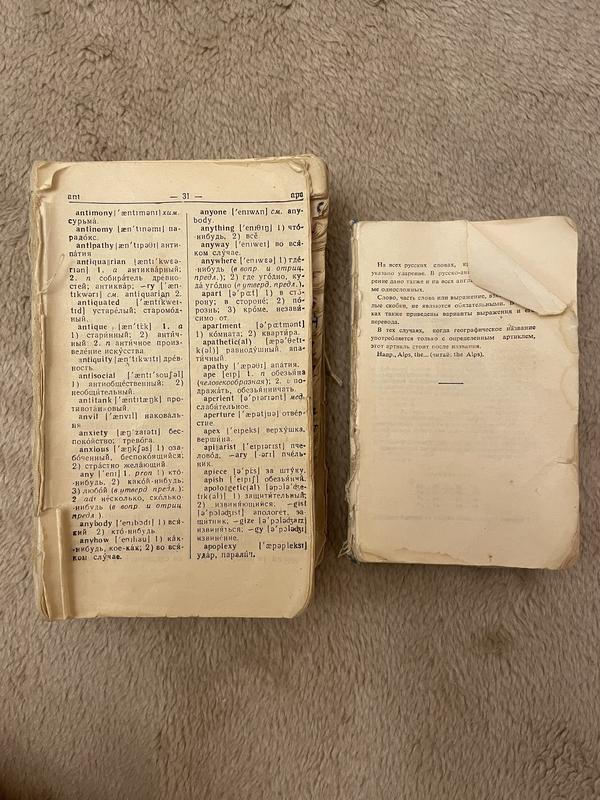 ant
— 31 —
apo
antimony ['æntɪmənɪ] хим.
сурьма.
antinomy [æn'tɪnəmɪ] па-
радо́кс.
antipathy [æn'tɪpəθɪ] анти-
па́тия
antiquarian [æntɪ'kwɛə-
rɪən] 1. a антиква́рный;
2. n собира́тель древно-
стей; антиква́р; —ry [æn-
tɪkwərɪ] см. antiquarian 2.
antiquated ['æntɪkweɪ-
tɪd] устаре́лый; старомо́д-
ный.
antique [æn'ti:k] 1. a
1) стари́нный; 2) анти́ч-
ный; 2. n анти́чное произ-
веде́ние иску́сства.
antiquity [æn'tɪkwɪtɪ] дре́в-
ность.
antisocial ['æntɪ'souʃəl]
1) антиобще́ственный; 2)
необщи́тельный.
antitank ['æntɪtæŋk] про-
тивота́нковый.
anvil ['ænvɪl] накова́ль-
ня
anxiety [æŋ'zaɪətɪ] бес-
поко́йство; трево́га.
anxious ['æŋkʃəs] 1) оза-
бо́ченный, беспоко́ящийся;
2) стра́стно жела́ющий.
any ['enɪ] 1. pron 1) кто́-
-нибудь, 2) како́й-нибудь;
3) любо́й (в утверд. предл.);
2. adv не́сколько, ско́лько-
-нибудь (в вопр. и отриц.
предл.).
anybody ['enɪbɔdɪ] 1) вся́-
кий 2) кто́-нибудь
anyhow ['enɪhau] 1) ка́к-
-нибудь, ко́е-как; 2) во вся́-
ком слу́чае.
anyone ['enɪwʌn] см. any-
body.
anything ['enɪθɪŋ] 1) что́-
-нибудь, 2) всё.
anyway ['enɪweɪ] во вся́-
ком слу́чае.
anywhere ['enɪwɛə] 1) где́-
-нибудь (в вопр. и отриц.
предл.); 2) где уго́дно, ку-
да́ уго́дно (в утверд. предл.).
apart [ə'pɑ:t] 1) в сто́-
рону; в стороне́; 2) по́-
рознь; 3) кро́ме, незави́-
симо от.
apartment [ə'pɑ:tmənt]
1) ко́мната; 2) кварти́ра.
apathetic(al) [æpə'θetɪ-
k(əl)] равноду́шный, апа-
ти́чный.
apathy ['æpəθɪ] апа́тия.
ape [eɪp] 1. n обезья́на
(человекообразная); 2. v по-
дража́ть, обезья́нничать.
aperient [ə'pɪərɪənt] мед.
слаби́тельное.
aperture ['æpətjuə] отве́р-
стие.
apex ['eɪpeks] верху́шка,
верши́на.
apiarist ['eɪpɪərɪst] пче-
лово́д, —ary [-ərɪ] пче́ль-
ник.
apiece [ə'pi:s] за шту́ку.
apish ['eɪpɪʃ] обезья́ний.
apologetic(al) [əpɔlə'dʒe-
tɪk(əl)] 1) защити́тельный;
2) извиня́ющийся; —gist
[ə'pɔlədʒɪst] апологе́т, за-
щи́тник; —gize [ə'pɔlədʒaɪz]
извиня́ться; —gy [ə'pɔlədʒɪ]
извине́ние.
apoplexy ['æpəpleksɪ]
уда́р, парали́ч.
На всех русских словах,
указано ударение. В русско-
рение дано также и на всех
ме односложных.
Слово, часть слова или выражение,
лые скобки, не являются обязательными. В
ках также приведены варианты выражения и
перевода.
В тех случаях, когда географическое название
употребляется только с определенным артиклем,
этот артикль стоит после названия.
Напр., Alps, the... (читай: the Alps).